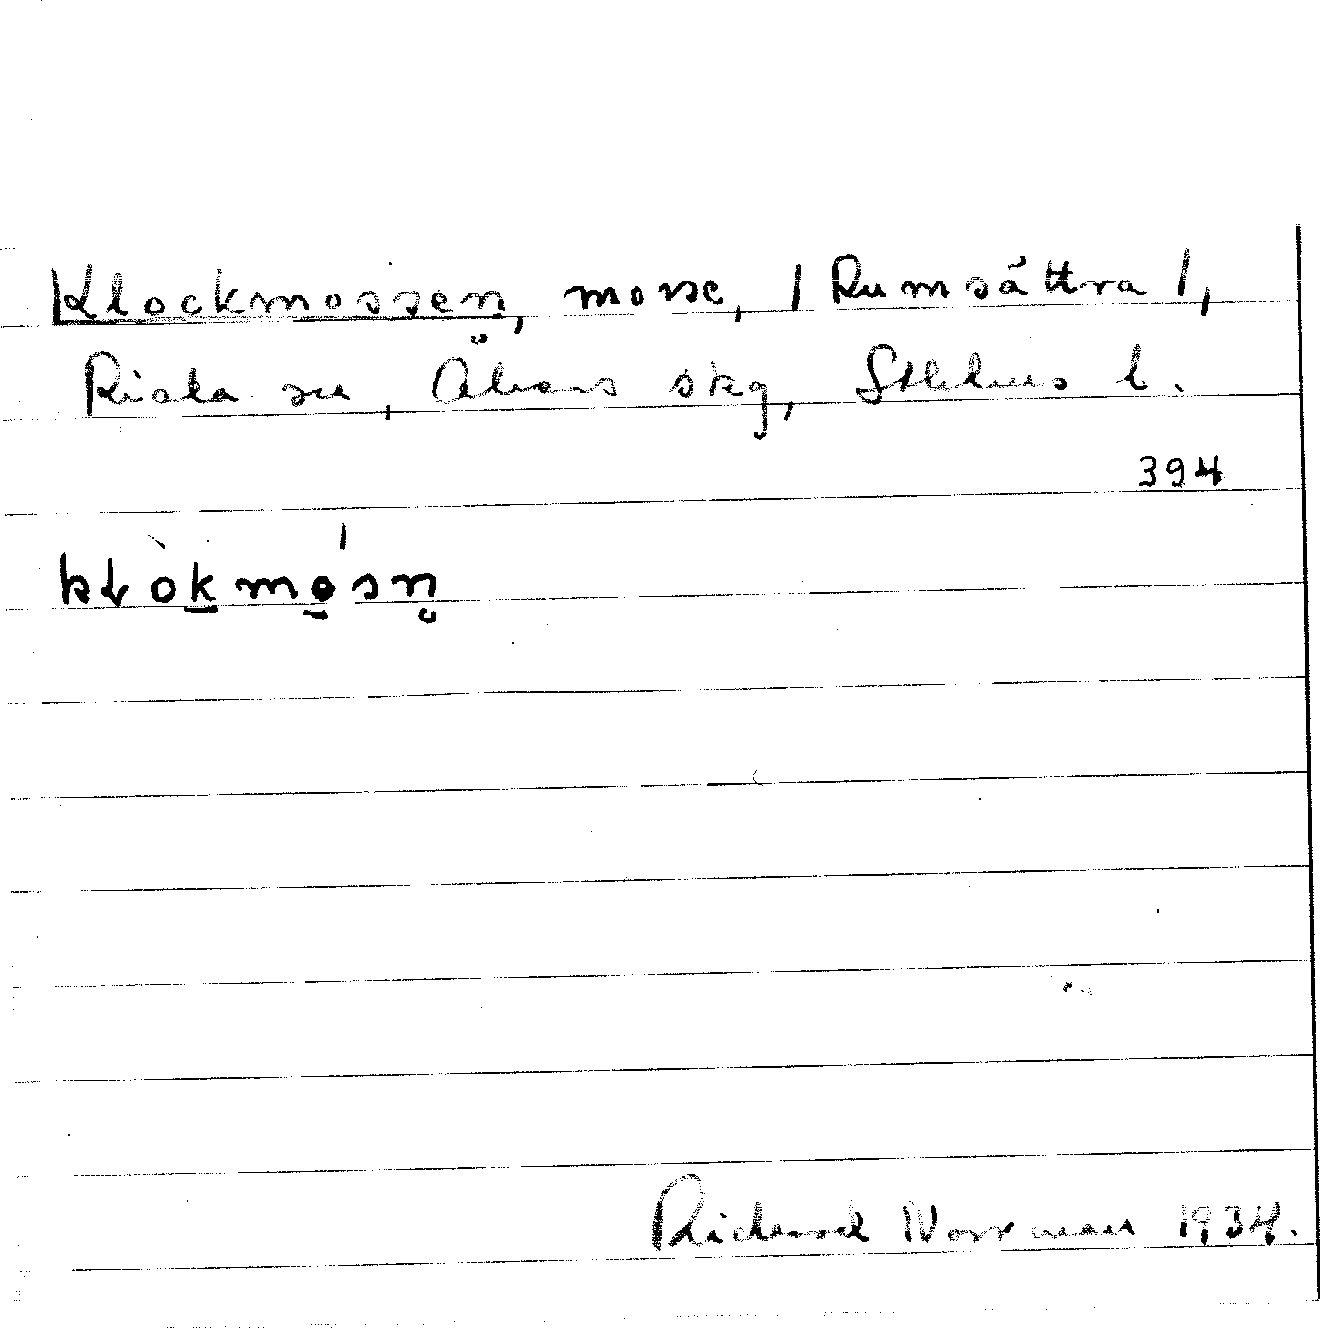 Klockmossen, mosse, / Rumsättra /,
Riala sn, Åkers skg, Sthlms l.
394
kłòkmo̠ßn̥
Rickard Norrman 1934.